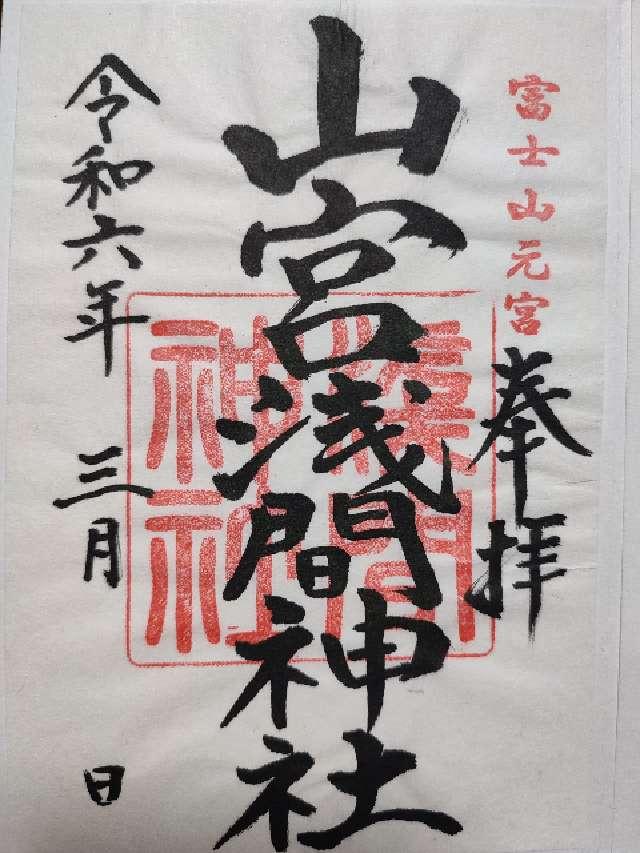 富士山元宮
奉拝
山宮浅間神社
令和六年 三月 日